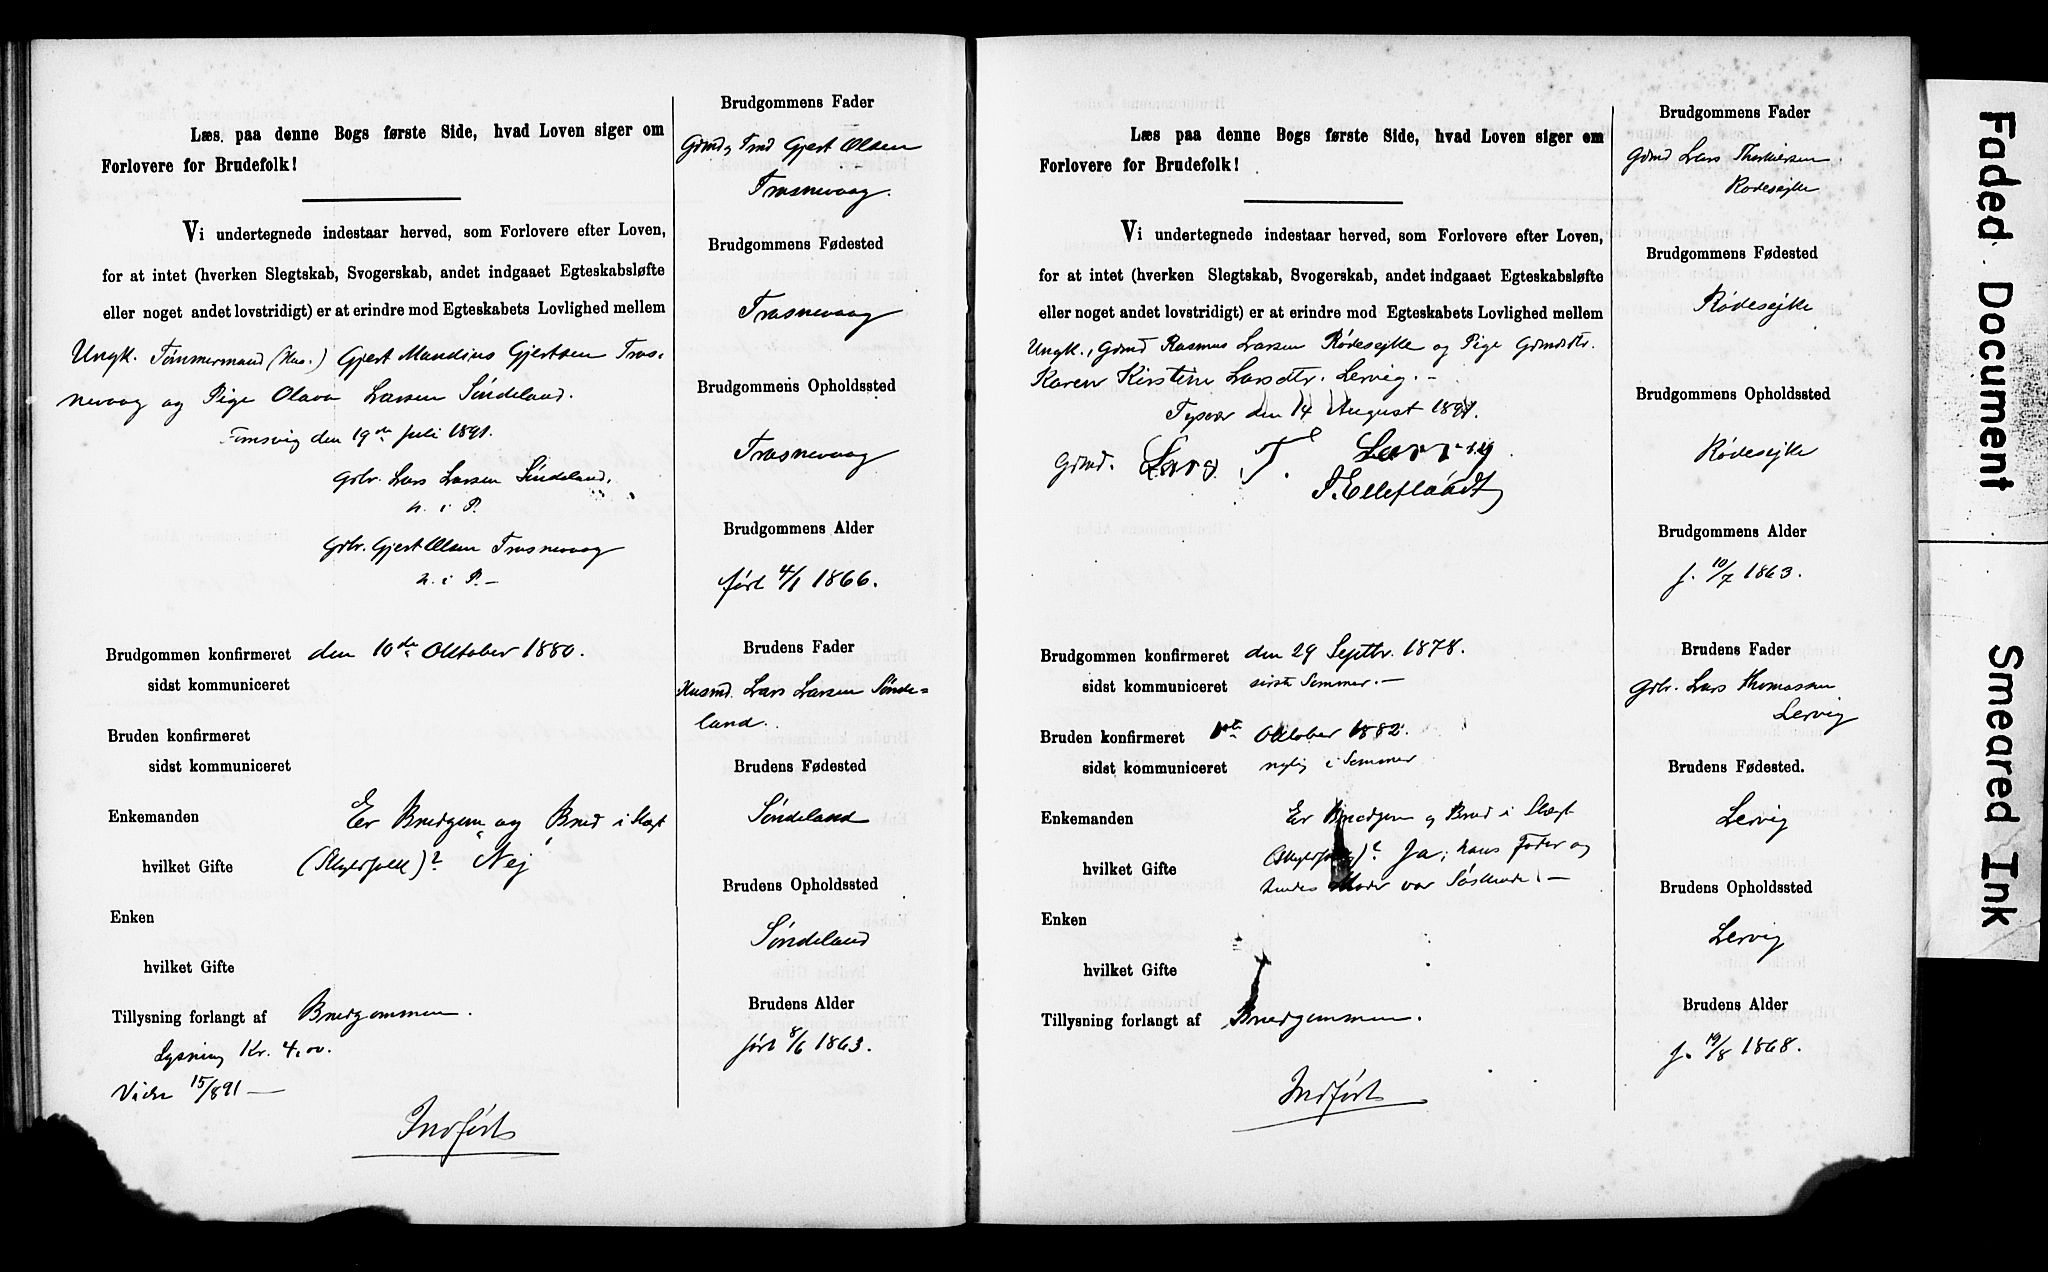 Læs paa denne Bogs første Side, hvad Loven siger om
Forlovere for Brudefolk!
Vi undertegnede indestaar herved, som Forlovere efter Loven,
for at intet (hverken Slegtskab, Svogerskab, andet indgaaet Egteskabsløfte
eller noget andet lovstridigt) er at erindre mod Egteskabets Lovlighed mellem
Ungk. Tømmermand (Hus.) Gjert Mandius Gjertsen Tras-
nevaag og Pige Olava Larsen Søndeland.
den 19de Juli 1891.
Gbr. Lars Larsen Søndeland.
m. i P.
Gbr. Gjert Olsen Trasnevaag
m. i P. —
Brudgommen konfirmeret den 10de Oktober 1880.
sidst kommuniceret
Bruden konfirmeret
sidst kommuniceret
Enkemanden Er Brudgom og Brud i Slægt
hvilket Gifte (Skyldfolk)? "Nej"
Enken
hvilket Gifte
Tillysning forlangt af Brudgommen.
Lysning Kr. 4,00.
15/8 91 —
Indført
Brudgommens Fader
Gjert Olsen
Trasnevaag.
Brudgommens Fødested
Trasnevaag
Brudgommens Opholdssted
Trasnevaag
Brudgommens Alder
født 4/1 1866.
Brudens Fader
Husmd. Lars Larsen Sønde=
land.
Brudens Fødested
Søndeland
Brudens Opholdssted
Søndeland
Brudens Alder
født 8/6 1863.
Læs paa denne Bogs første Side, hvad Loven siger om
Forlovere for Brudefolk!
Vi undertegnede indestaar herved, som Forlovere efter Loven,
for at intet (hverken Slegtskab, Svogerskab, andet indgaaet Egteskabsløfte
eller noget andet lovstridigt) er at erindre mod Egteskabets Lovlighed mellem
Ungk., Gdmd Rasmus Larsen Rødesejke og Pige Gdmdsdtr.
Karen Kirstine Larsdtr. Lervig. —
Tysvær den 14 August 1891.
Gdmd. Lars T. Lervig
Brudgommen konfirmeret den 29 Septbr. 1878.
sidst kommuniceret sidste Sommer. —
Bruden konfirmeret 1ste Oktober 1882.
sidst kommuniceret nylig i Sommer
Enkemanden Er Brudgom og Brud i Slægt
hvilket Gifte (Skyldfolk)? Ja; hans Fader og
hendes Moder var Søskende. —
Enken
hvilket Gifte
Tillysning forlangt af Brudgommen.
Indført
Brudgommens Fader
Gdmd Lars Thorkiersen
Rødesejke
Brudgommens Fødested
Rødesejke
Brudgommens Opholdssted
Rødesejke
Brudgommens Alder
f. 10/7 1863.
Brudens Fader
Gbr. Lars Thomassen
Lervig
Brudens Fødested.
Lervig
Brudens Opholdssted
Lervig
Brudens Alder
f. 19/8 1868.
Faded Document
Smeared Ink